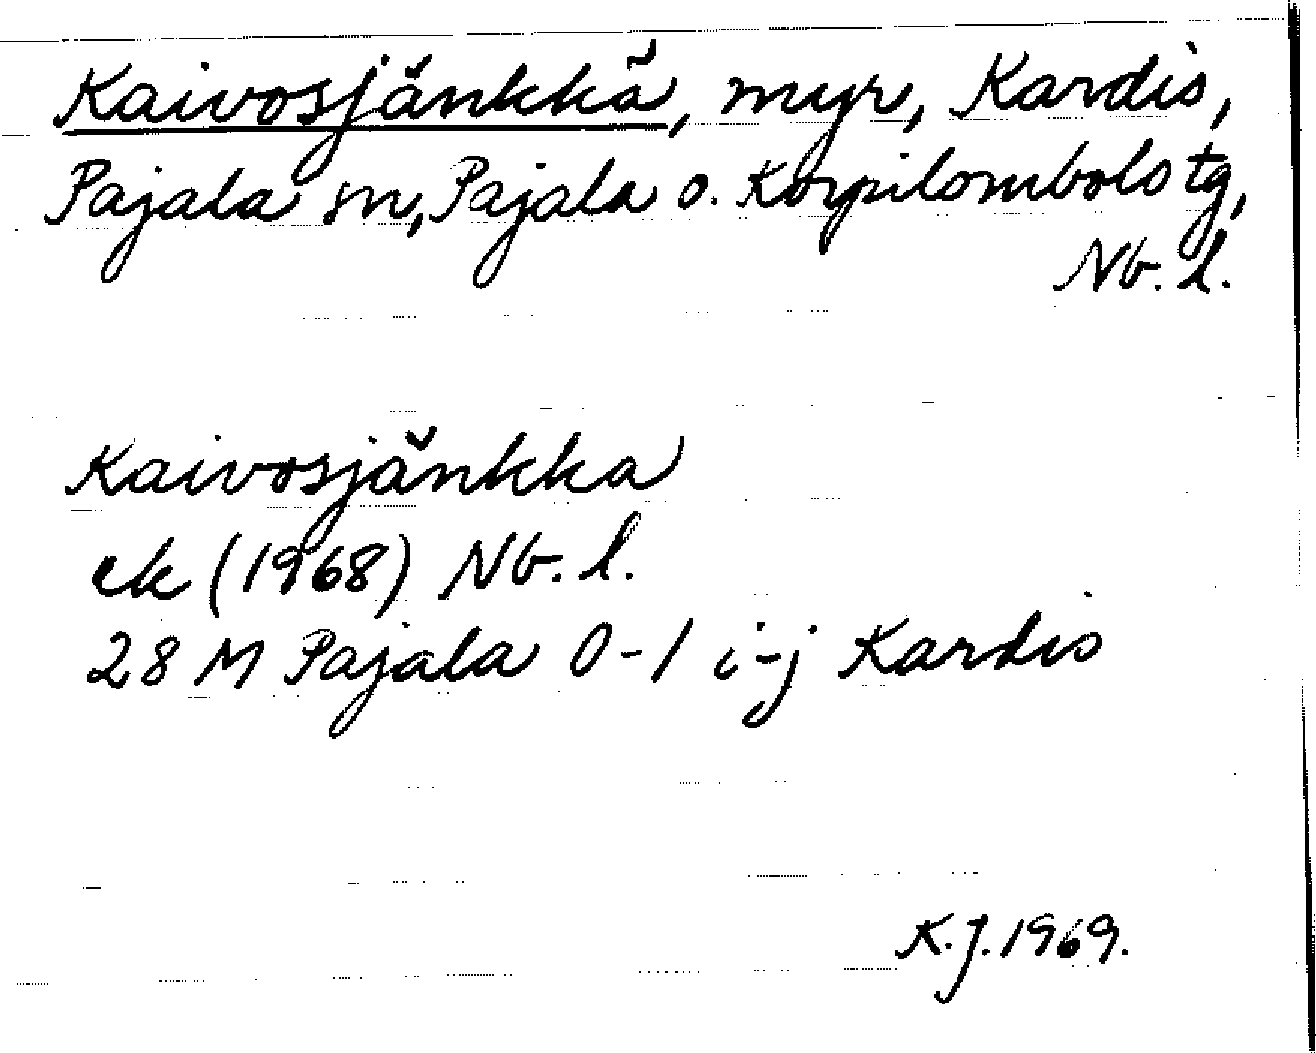 Kaivosjänkkä, myr, Kardis,
Pajala sn, Pajala o. Korpilombolo tg,
Nb. l.
Kaivosjänkka
ek (1968) Nb. l.
28 M Pajala 0-1 i-j Kardis
K.J. 1969.